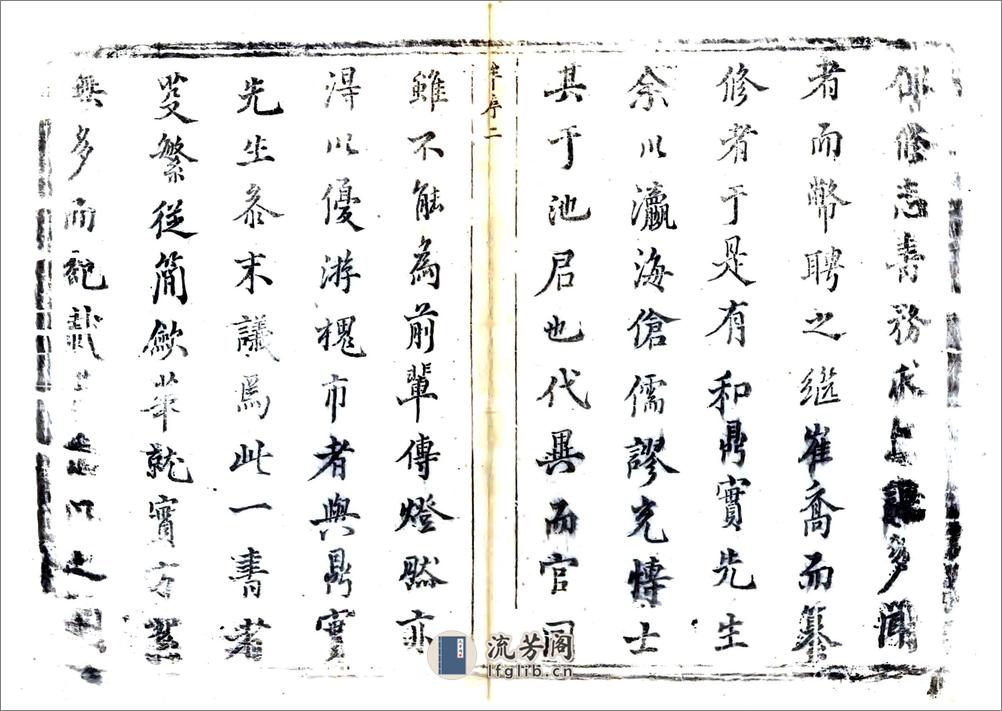 修志書務求多聞
者而幣聘之繼崔喬而纂
修者于是有和鼎實先生
余以瀛海傖儒謬充博士
其于池君也代異而官同
序二
雖不能為前輩傳燈然亦
得以優游槐市者與鼎實
先生忝末議焉此一書者
芟繁從簡斂華就實
無多而
流芳阁
lfglib.cn